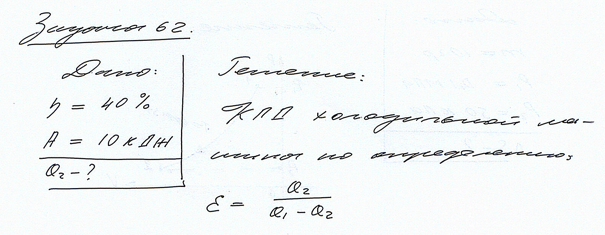 Задача 62.
Дано:
η = 40%
A = 10 кДж
Q₂ - ?
Решение:
КПД холодильной ма-
шины по определению:
ε = Q₂ / Q₁ - Q₂